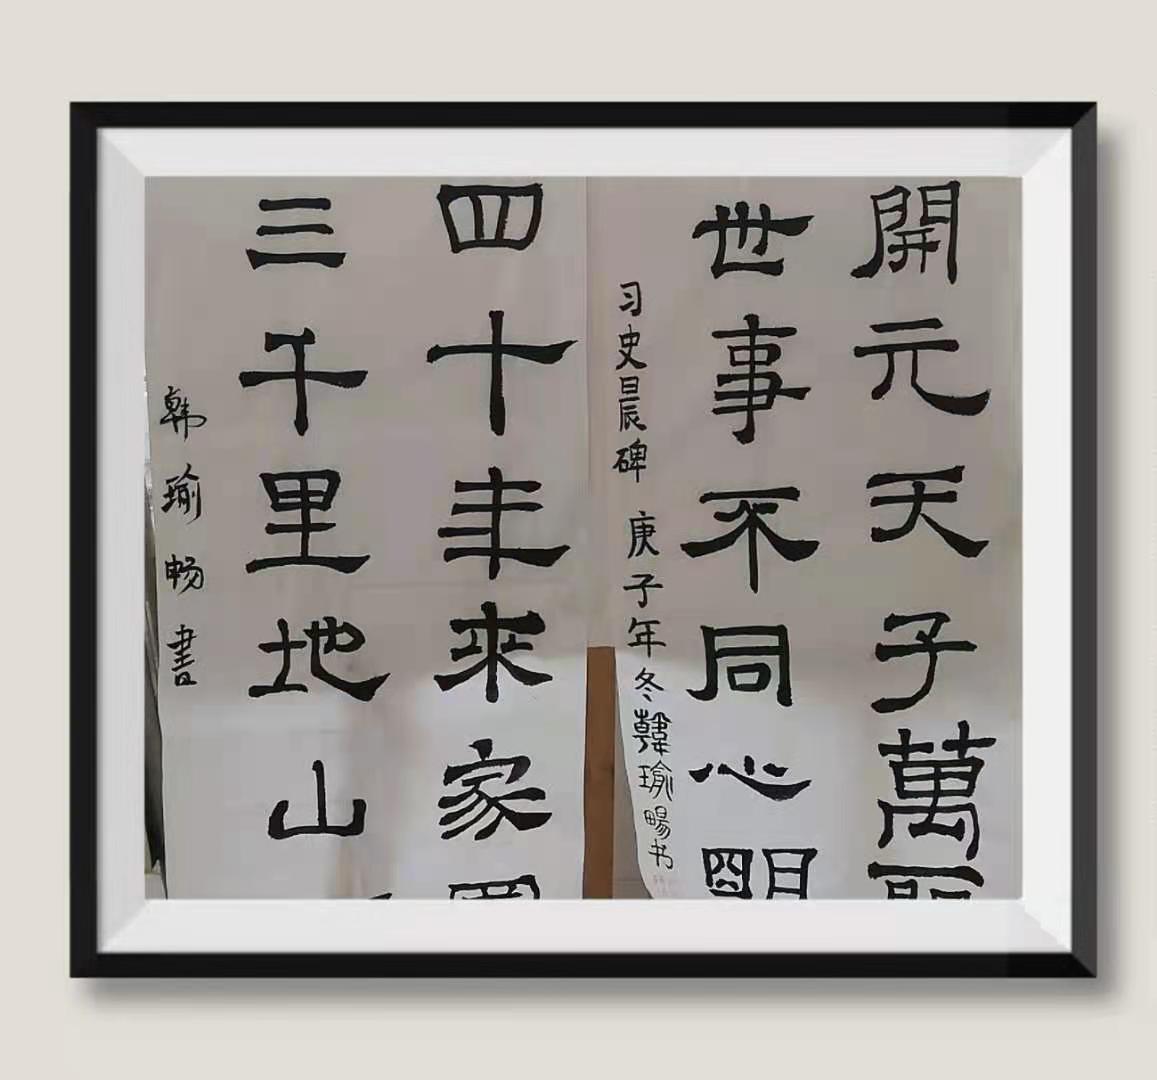 開元天子萬
世事不同心朙
习史晨碑 庚子年冬韓瑜暢书
四十年來家國
三千里地山
韩瑜畅書